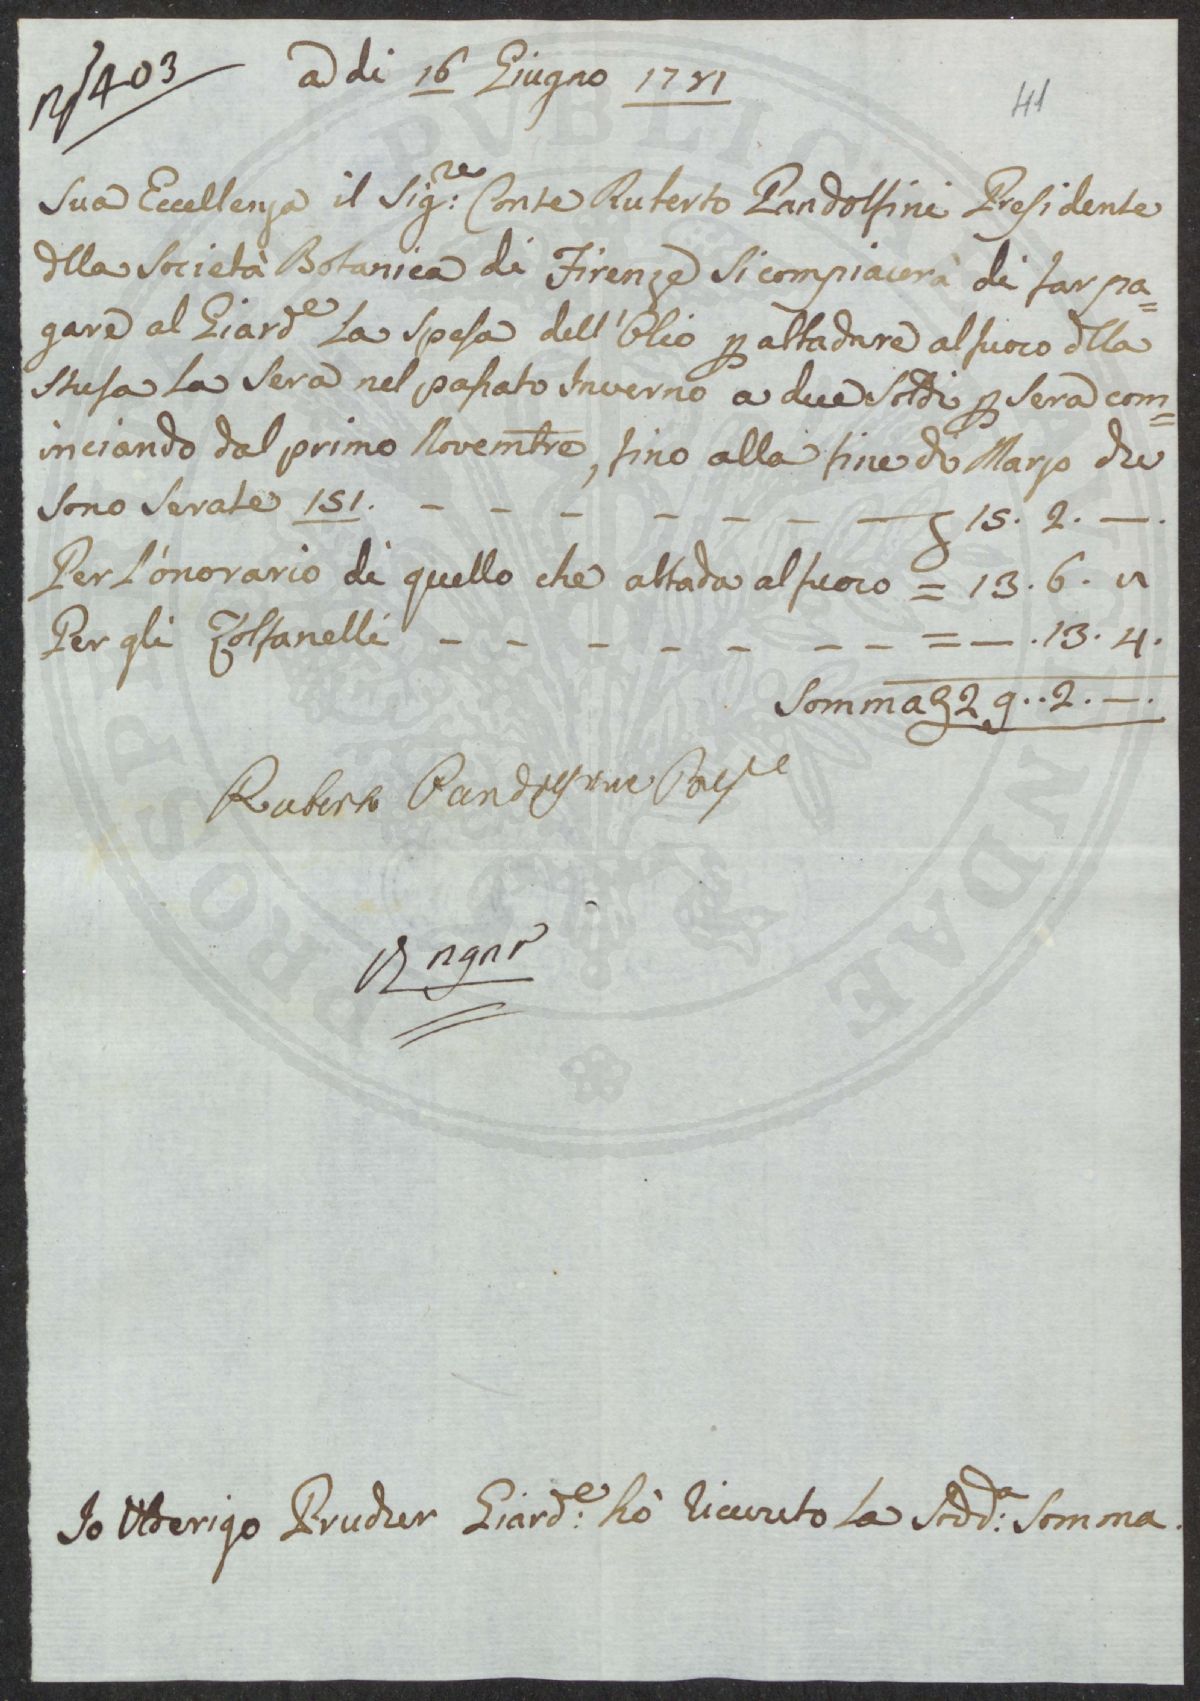 N° 403
a di 16 Giugno 1781
41
Sua Eccellenza il Sig:re Conte Ruberto Pandolfini Presidente
dlla Società Botanica di Firenze si compiacerà di far pa=
gare al Giard:e La Spesa dell'Olio p abbadare al fuoco dlla
Stufa La Sera nel passato Inverno a due Soldi p Sera com=
inciando dal primo Novembre, fino alla fine di Marzo che
Sono Serate 151. - - - - - - — £ 15. 2. —.
Per L'onorario di quello che abbada al fuoco = 13. 6. 8
Per gli Zolfanelli - - - - - - - = —. 13. 4.
Somma £ 29.. 2. —.
Ruberto Pandolfini Pres:e
PUBLICAE
PROSPERITATI
Io Ulderigo Prucher Giard:e hò ricevuto La Sodd:a Somma.